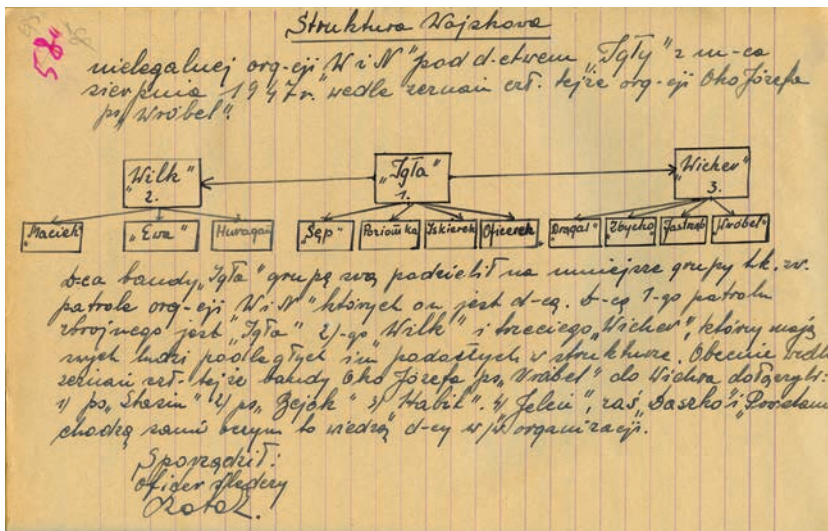 58
Struktura Wojskowa
nielegalnej org-cji W i N" pod d-ctwem „Igły" z m-ca
sierpnia 1947r. wedle zeznań czł. tejże org-cji Oko Józefa
ps „Wróbel".
„Wilk" „Igła" „Wicher"
2. 1. 3.
„Maciek" „Ewa" Huragan „Sęp" Poziomka Iskierek Oficerek „Drągal" „Zbycho" Jastrząb „Wróbel"
D-ca bandy „Igła" grupę swą podzielił na mniejsze grupy t.k. zw.
patrole org-cji W i N" których on jest d-cą. D-cą 1-go patrolu
zbrojnego jest „Igła" 2)-go „Wilk" i trzeciego „Wicher", którzy mają
swych ludzi podległych im podaszłych w strukturze. Obecnie wedle
zeznań czł. tejże bandy Oko Józefa ps „Wróbel" do Wichra dołączyli:
1) ps „Stasin" 2) ps „ 3) „Habik". 4) Jeleń", zaś „Daszko" i
chodzą sami o czym to wiedzą d-cy w/w organizacji.
Sporządził:
oficer śledczy